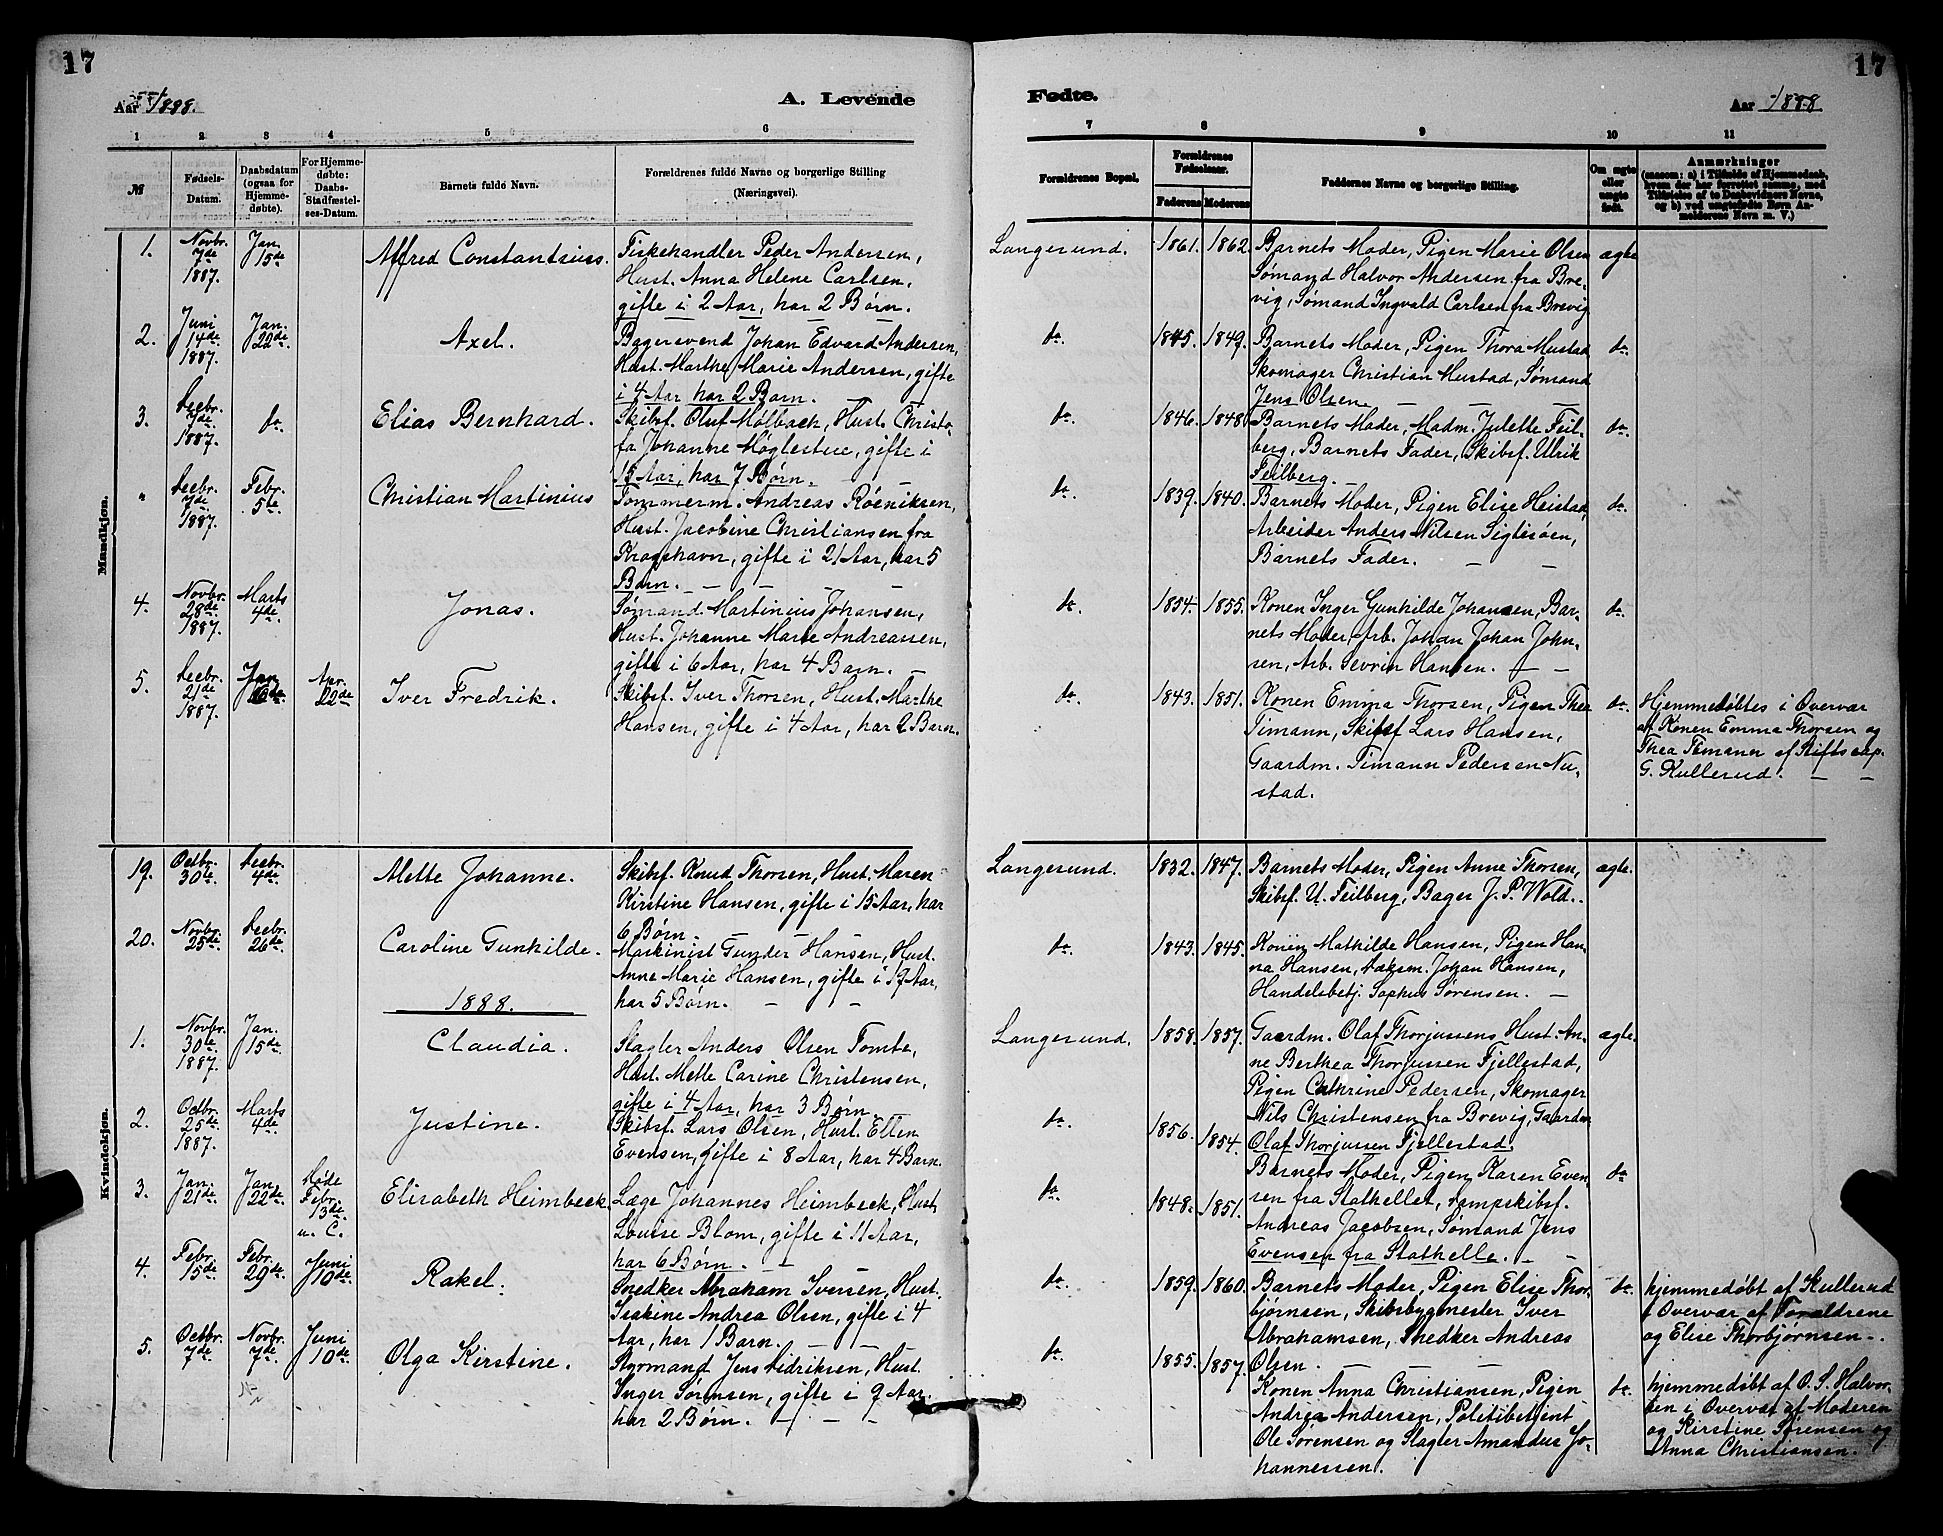 17
17
Aar 1888.
A. Levende
Fødte.
Aar 1888
1 2 3 4 5 6 7 8 9 10 11
№
Fødsels-
Datum.
Daabsdatum
(ogsaa for
Hjemme-
døbte).
For Hjemme-
døbte:
Daabs-
Stadfæstel-
ses-Datum.
Barnets fulde Navn.
Forældrenes fulde Navne og borgerlige Stilling
(Næringsvei).
Forældrenes Bopæl.
Forældrenes
Fødselsaar.
Faderens Moderens
Faddernes Navne og borgerlige Stilling.
Om ægte
eller
uægte
født.
Anmærkninger
(saasom: a) i Tilfælde af Hjemmedaab,
hvem der har forrettet samme, med
Tilføielse af to Daabsvidners Navne,
og b) ved uægtefødte Børn An-
melderens Navn m. V.)
Mandkjøn.
1.
Novbr.
7de
1887.
Jan.
15de
Alfred Constantius.
Fiskehandler Peder Andersen,
Hust. Anna Helene Carlsen,
gifte i 2 Aar, har 2 Børn.
Langesund.
1861. 1862.
Barnets Moder, Pigen Marie Olsen
Sømand Halvor Andersen fra Bre-
vig, Sømand Ingvald Carlsen fra Brevig
ægte
2.
Juni
14de
1887.
Jan.
22de
Axel.
Bagersvend Johan Edvard Andersen,
Hust. Marthe Marie Andersen, gifte
i 4 Aar har 2 Barn.
do.
1845. 1849.
Barnets Moder, Pigen Thora Mustad
Skomager Christian Mustad, Sømand
Jens Olsen
do.
3.
Decbr.
7de
1887.
do.
Elias Bernhard.
Skibsf. Oluf Mølback, Hust. Christo-
fa Johanne Møglestue, gifte i
15 Aar, har 7 Børn.
do.
1846. 1848.
Barnets Moder, Madm. Julette Feil-
berg, Barnets Fader, Skibsf. Ulrik
Feilberg.
do.
"
Decbr.
7de
1887.
Febr.
5te
Christian Martinius
Tømmerm. Andreas
Hust. Jacobine Christiansen fra
Kragshavn, gifte i 21 Aar, har 5
Barn.
do.
1839. 1840.
Barnets Moder, Pigen Elise Heistad,
Arbeider Anders Nilsen Sigtesøen,
Barnets Fader.
do.
4.
Novbr.
28de
1887.
Marts
4de
Jonas.
Sømand Martinius Johansen,
Hust. Johanne Marie Andreassen,
gifte i 6 Aar, har 4 Barn.
do.
1854. 1855.
Konen Inger Gunhilde Johansen, Bar-
nets Moder, Arb. Johan Johan John-
sen, Arb. Sevrin Hansen.
do.
5.
Decbr.
21de
1887.
Jan.
Apr.
22de
Iver Fredrik.
Skibsf. Iver Thorsen, Hust. Marthe
Hansen, gifte i 4 Aar, har 2 Barn.
do
1843. 1851.
Konen Emma Thorsen, Pigen Thea
Timann, Skibsf Lars Hansen,
Gaardm. Timann Pedersen Nu-
stad.
do.
Hjemmedøbtes i Overvær
af Konen Emma Thorsen og
Thea Timann af Stiftscap.
G. Kullerud.
Kvindekjøn.
19.
Octbr.
30te
Decbr.
4de
Mette Johanne.
Skibsf. Knud Thorsen, Hust. Maren
Kirstine Hansen, gifte i 15 Aar, har
6 Børn.
Langesund.
1832. 1847.
Barnets Moder, Pigen Anne Thorsen,
Skibsf. U. Feilberg, Bager J. P. Wold.
ægte.
20.
Novbr.
25de
Decbr.
26de
Caroline Gunhilde.
Maskinist Gunder Hansen, Hust.
Anne Marie Hansen, gifte i 17 Aar,
har 5 Børn.
do.
1843. 1845.
Konen Mathilde Hansen, Pigen Han-
na Hansen, Johan Hansen,
Handelsbetj. Sophus Sørensen.
1888.
1.
Novbr.
30te
1887.
Jan.
15de
Claudia.
Slagter Anders Olsen Tomte,
Hust. Mette Carine Christensen,
gifte i 4 Aar, har 3 Børn.
Langesund.
1858. 1857.
Gaardm. Olaf Thorjussens Hust. An-
ne Berthea Thorjussen Fjellestad,
Pigen Cathrine Pedersen, Skomager
Nils Christensen fra Brevig, Gaardm
Olaf Thorjussen Fjellestad.
ægte.
2.
Octbr.
25de
1887.
Marts
4de
Justine.
Skibsf. Lars Olsen, Hust. Ellen
Evensen, gifte i 8 Aar, har 4 Barn.
do.
1856. 1854.
Barnets Moder, Pigen Karen Even-
sen fra Stathellet, Dampskibsf.
Andreas Jacobsen, Sømand Jens
Evensen fra Stathelle.
do
3.
Jan.
21de
Jan.
22de
Døde
Febr.
13de
u. C.
Elisabeth Heimbeck.
Læge Johannes Heimbeck, Hust.
Louise Blom, gifte i 11 Aar,
har 6 Børn.
do.
1848. 1851.
4.
Febr.
15de
Febr.
29de
Juni
10de
Rakel.
Snedker Abraham Iversen, Hust.
Isakine Andrea Olsen, gifte i 4
Aar, har 1 Barn.
do.
1859. 1860.
Barnets Moder, Pigen Elise Thor-
bjørnsen, Skibsbygmester Iver
Abrahamsen, Snedker Andreas
Olsen.
do.
hjemmedøbt af Kullerud
i Overvær af Forældrene
og Elise Thorbjørnsen.
5.
Octbr.
7de
Novbr.
7de
Juni
10de
Olga Kirstine.
Styrmand Jens Didriksen, Hust.
Inger Sørensen, gifte i 9 Aar.
har 2 Børn.
do.
1855. 1857.
Konen Anna Christiansen, Pigen
Andrea Andersen, Politibetjent
Ole Sørensen og Slagter Amandus Jo-
hannessen.
do.
hjemmedøbt af O. S. Halvor-
sen i Overvær af Moderen
og Kirstine Sørensen og
Anna Christiansen.